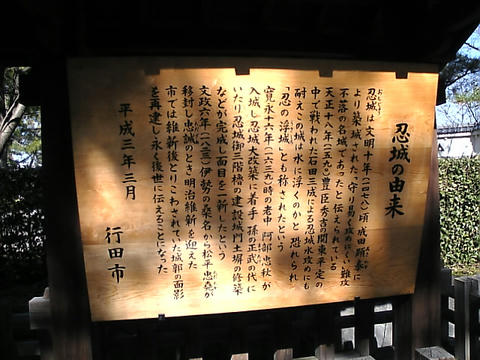 忍城の由来
おしじょう
忍城は文明十年(一四七八)頃 成田顕泰に
より築城された。守り易く攻め難く、難攻
不落の名城であったと伝えられている
天正十八年(一五九〇)豊臣秀吉の関東平定の
中で戦われた石田三成による忍城水攻めにも
耐えこの城は水に浮くのかと恐れられ
「忍の浮城」とも称されたという
寛永十六年(一六三九)時の老中 阿部忠秋が
入城し忍城大改築に着手 孫の正武の代に
いたり忍城御三階櫓の建設 城門土塀の修築
などが完成し面目を一新したという
文政六年(一八二三)伊勢の桑名から松平忠堯が
移封し忠誠のとき明治維新を迎えた
市では維新後とりこわされていた城郭の面影
を再建し永く後世に伝えることになった
平成三年三月
行田市